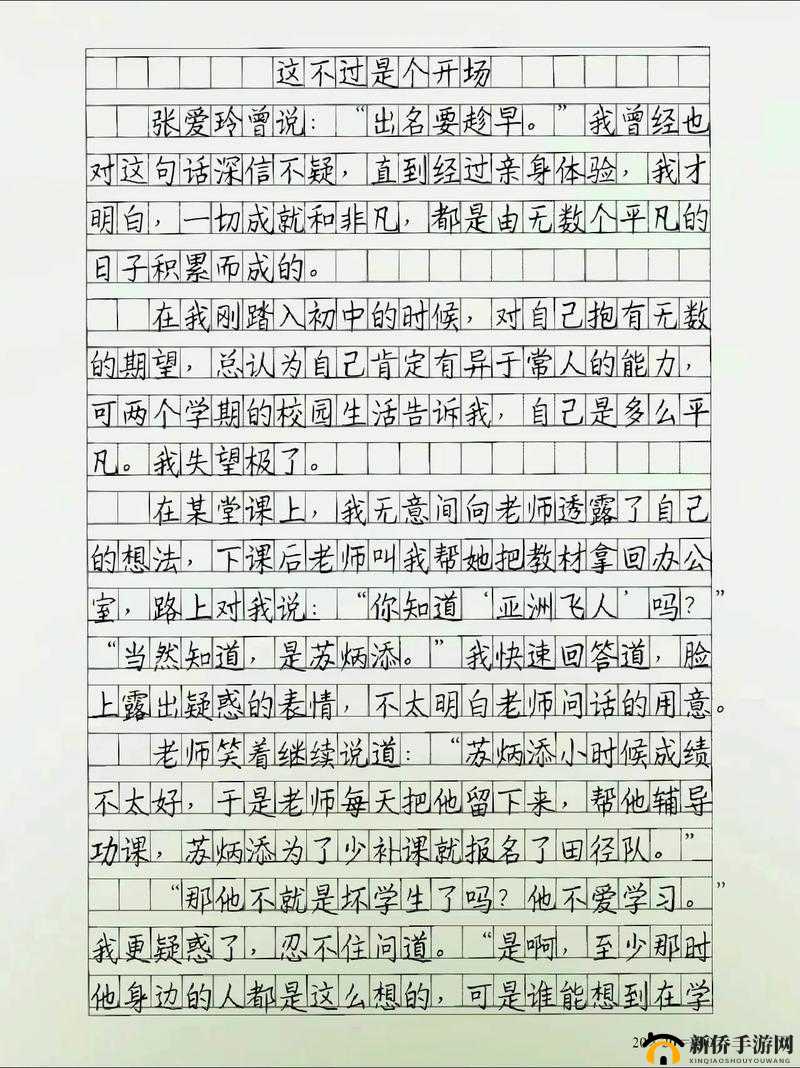 这不过是个开场
张爱玲曾说：“出名要趁早。”我曾经也
对这句话深信不疑，直到经过亲身体验，我才
明白，一切成就和非凡，都是由无数个平凡的
日子积累而成的。
在我刚踏入初中的时候，对自己抱有无数
的期望，总认为自己肯定有异于常人的能力，
可两个学期的校园生活告诉我，自己是多么平
凡。我失望极了。
在某堂课上，我无意间向老师透露了自己
的想法，下课后老师叫我帮她把教材拿回办公
室，路上对我说：“你知道‘亚洲飞人’吗？”
“当然知道，是苏炳添。”我快速回答道，脸
上露出疑惑的表情，不太明白老师问话的用意。
老师笑着继续说道：“苏炳添小时候成绩
不太好，于是老师每天把他留下来，帮他辅导
功课，苏炳添为了少补课就报名了田径队。”
“那他不就是坏学生了吗？他不爱学习。”
我更疑惑了，忍不住问道。“是啊，至少那时
他身边的人都是这么想的，可是谁能想到在学
新侨手游网
XINQIAOSHOUYOUWANG